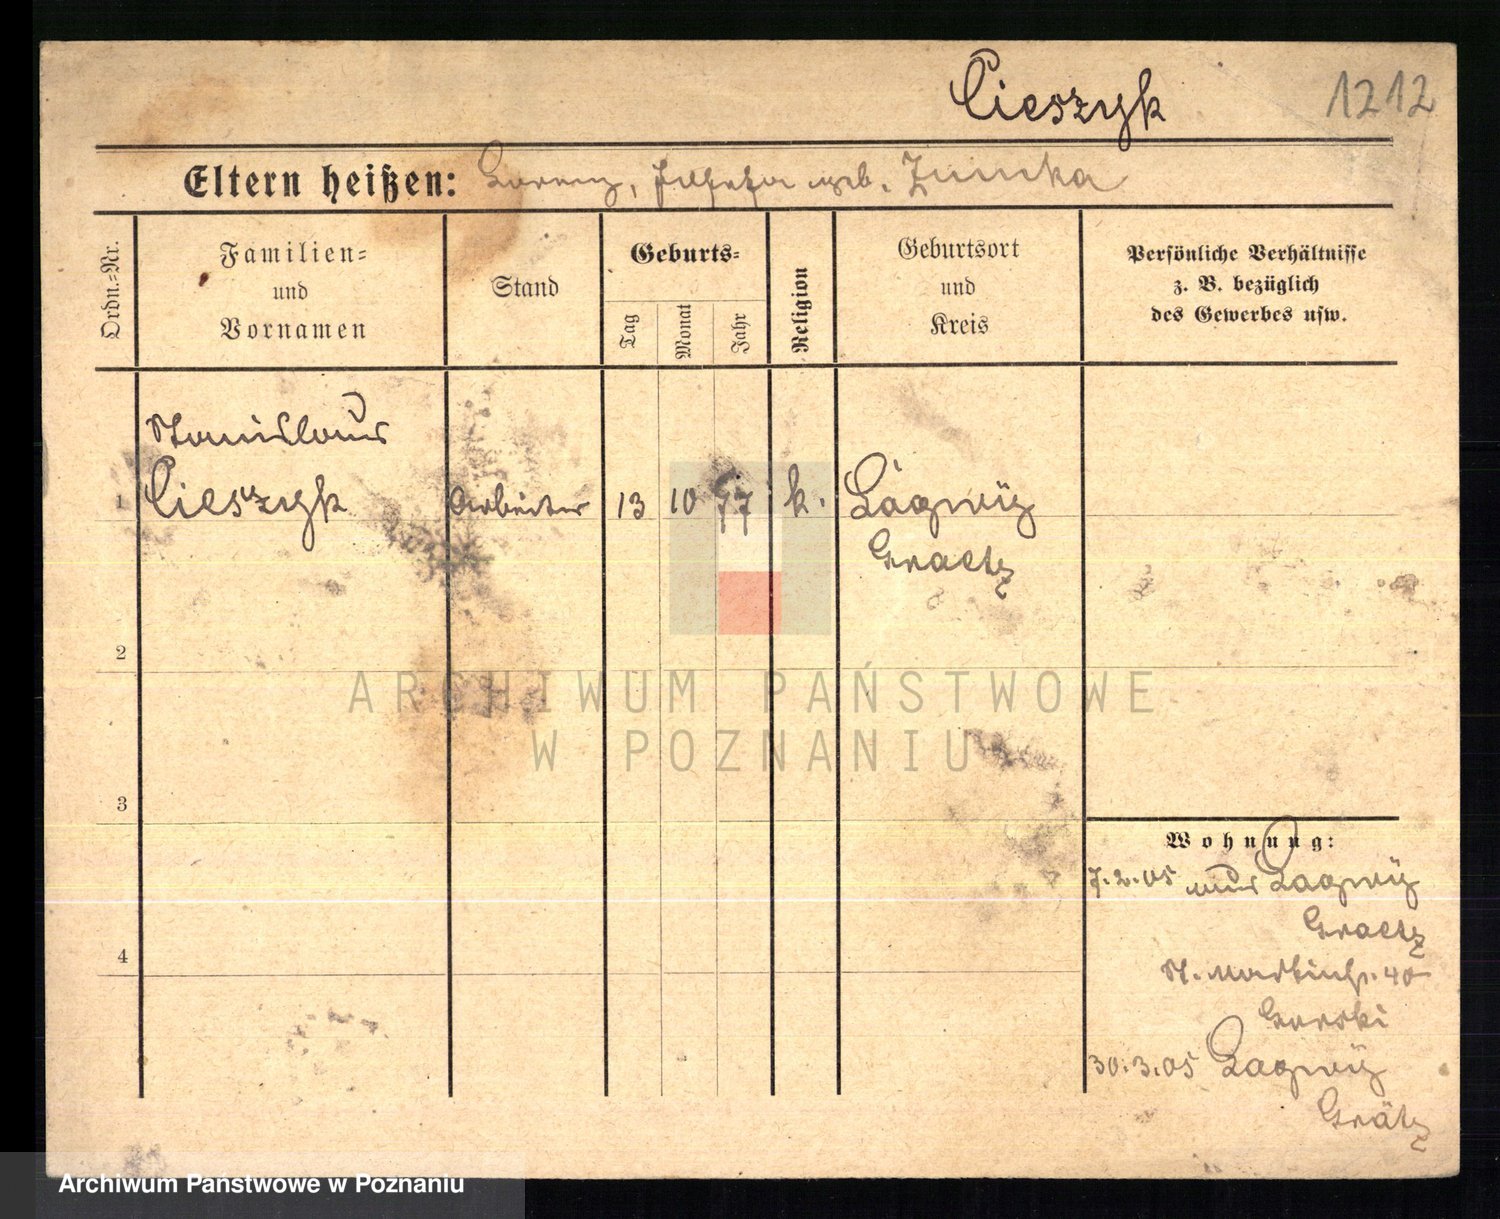 Cieszyk 1212
Eltern heißen: Lorenz, Josefa geb. Zumka
Ordn.-Nr.
Familien-
und
Vornamen
Stand
Geburts-
Tag
Monat
Jahr
Religion
Geburtsort
und
Kreis
Persönliche Verhältnisse
z. B. bezüglich
des Gewerbes usw.
Stanislaus
1 Cieszyk Arbeiter 13 10 77 k. Lagwÿ
Graetz
2
3
4
Wohnung:
7.2.05 aus Lagwÿ
Graetz
St. Martinstr. 40
Gorski
30.3.05 Lagwÿ
Grätz
ARCHIWUM PAŃSTWOWE
W POZNANIU
Archiwum Państwowe w Poznaniu